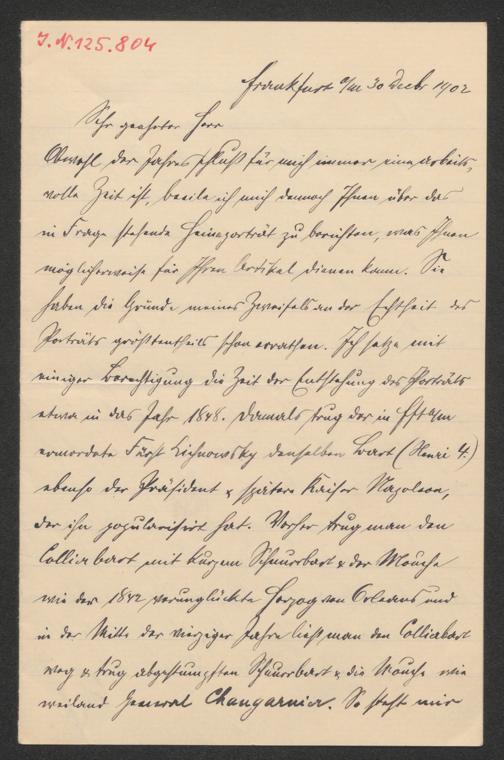 J. N. 125.804
Frankfurt a/M 30 Decbr 1902
Sehr geehrter Herr
Obwohl der Jahresschluß für mich immer eine arbeits-
volle Zeit ist, beeile ich mich dennoch Ihnen über das
in Frage stehende Heineporträt zu berichten, was Ihnen
möglicherweise für Ihren Artikel dienen kann. Sie
haben die Gründe meines Zweifels an der Echtheit des
Porträts größtentheils schon errathen. Ich setze mit
einiger Berechtigung die Zeit der Entstehung des Porträts
etwa in das Jahr 1848. Damals trug der in Fft a/M
ermordete Fürst Lichnowsky denselben Bart (Henri 4.)
ebenso der Präsident & spätere Kaiser Napoleon,
der ihn popularisirt hat. Vorher trug man den
Collierbart mit kurzem Schnurrbart & der Mouche
wie der 1842 verunglückte Herzog von Orleans und
in der Mitte der vierziger Jahre ließ man den Collierbart
weg & trug abgestumpften Schnurrbart & die Mouche wie
weiland General Changarnier. So steht mir